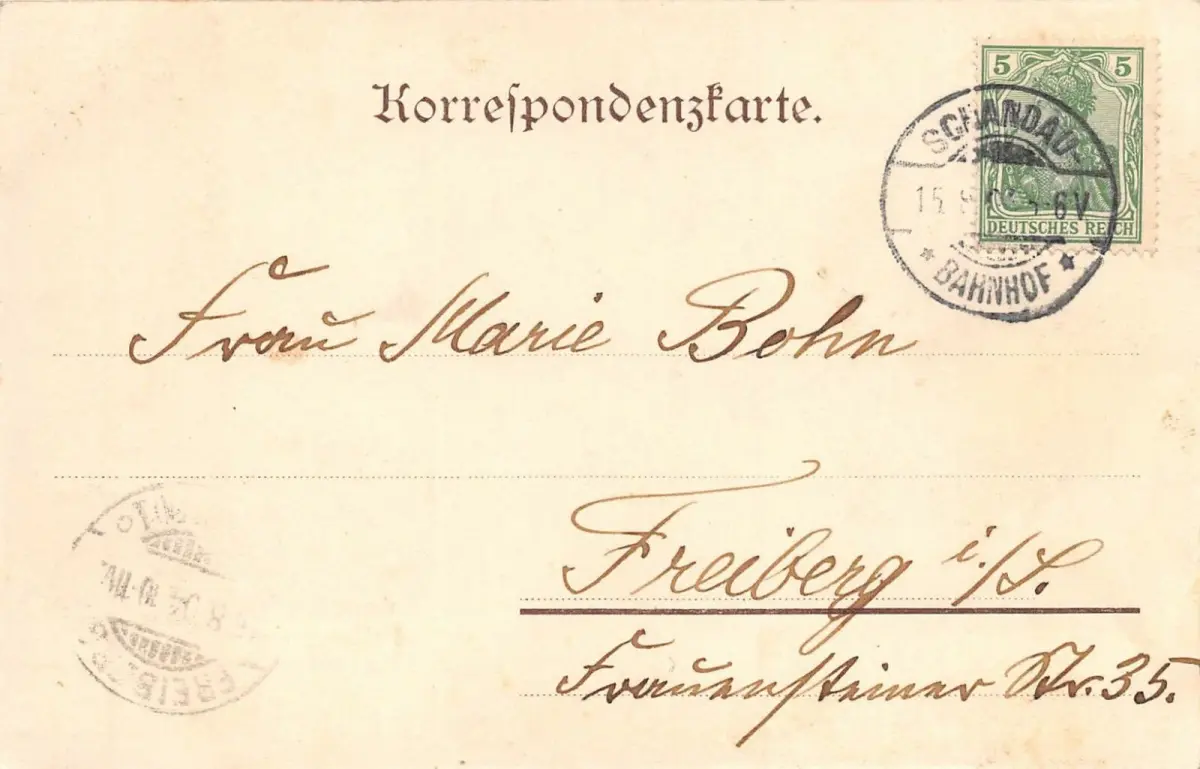 Korrespondenzkarte.
5 5
DEUTSCHES REICH
SCHANDAU
15. 5-6V
* BAHNHOF *
Frau Marie Bohn
Freiberg i./S.
Frauensteiner Str. 35.